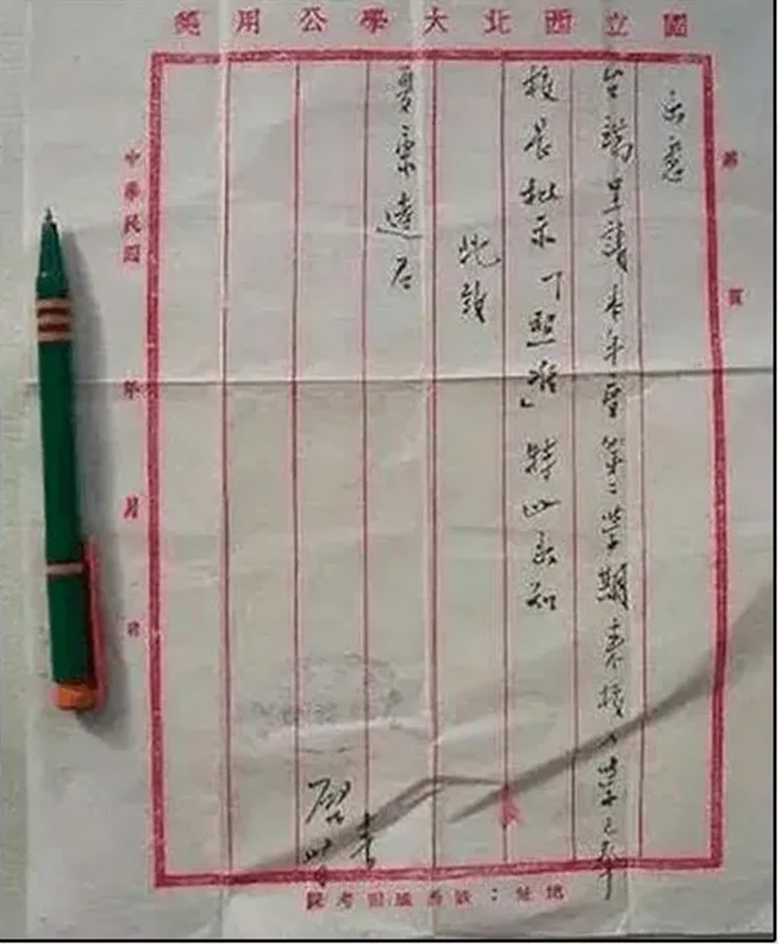 國立西北大學公用箋
第 頁
示悉
台端呈請本年度第二學期來校入學已奉
校長批示「照准」特此函知
此致
夏宗君
啓
中華民國 年 月 日
地址：陝西城固考院